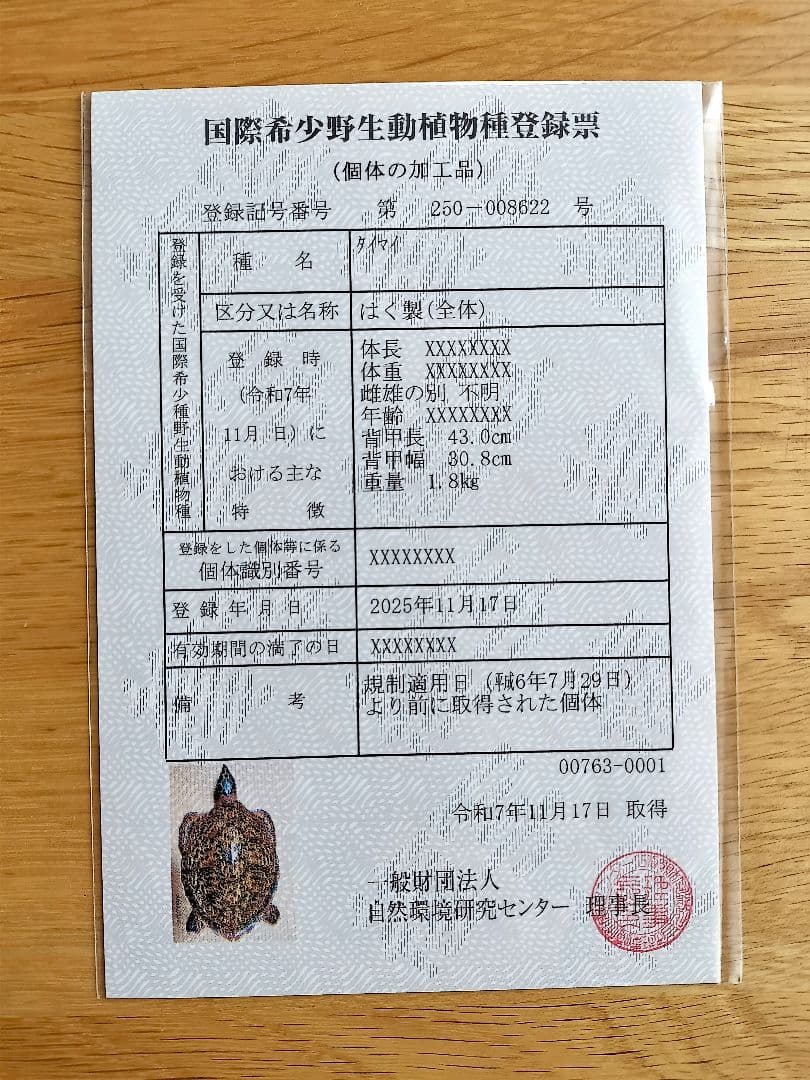 国際希少野生動植物種登録票
(個体の加工品)
登録記号番号 第 250-008622 号
登録を受けた国際希少種野生動植物種
種 名 タイマイ
区分又は名称 はく製(全体)
登 録 時
(令和7年
11月 日)に
おける主な
特 徴
体長 XXXXXXXX
体重 XXXXXXXX
雌雄の別 不明
年齢 XXXXXXXX
背甲長 43.0cm
背甲幅 30.8cm
重量 1.8kg
登録をした個体等に係る
個体識別番号 XXXXXXXX
登 録 年 月 日 2025年11月17日
有効期間の満了の日 XXXXXXXX
備 考
規制適用日 (平成6年7月29日)
より前に取得された個体
00763-0001
令和7年11月17日 取得
一般財団法人
自然環境研究センター 理事長